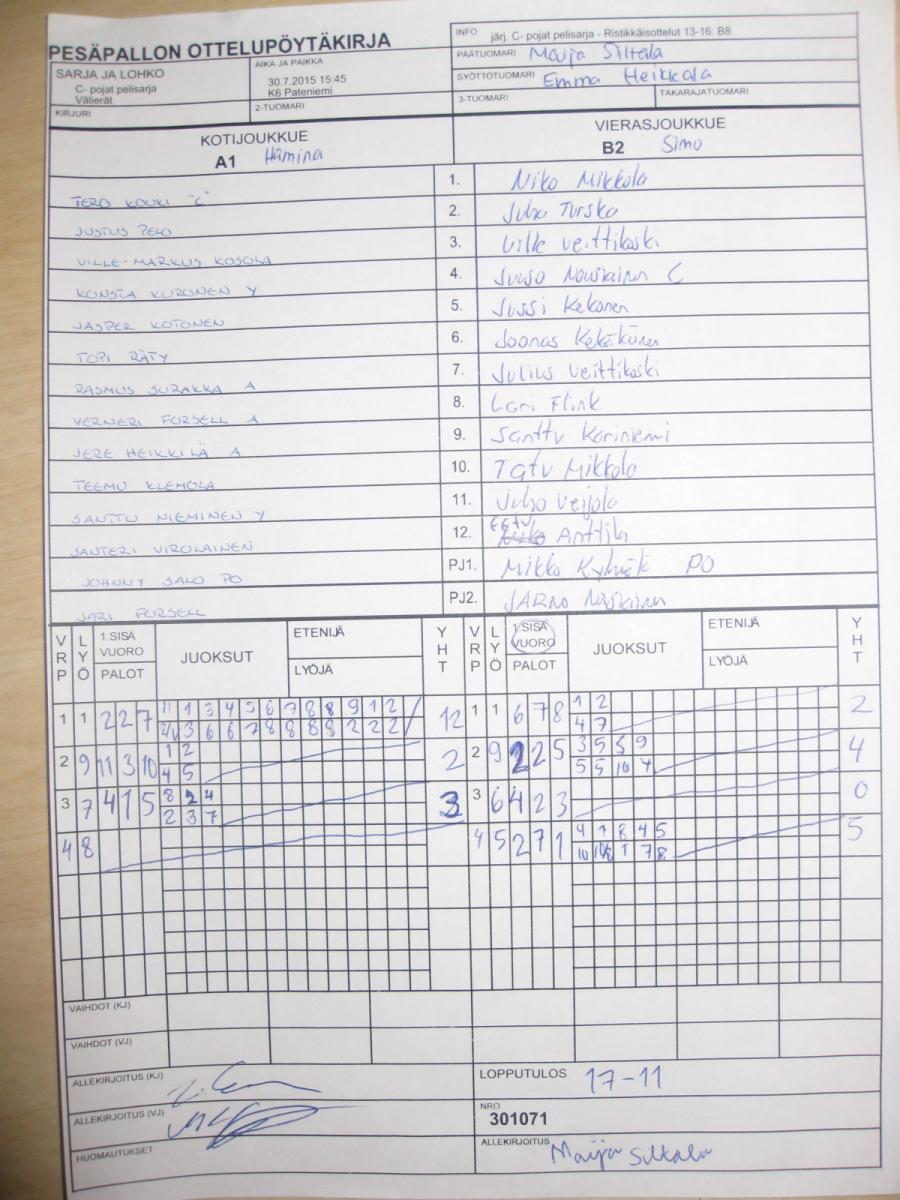 PESÄPALLON OTTELUPÖYTÄKIRJA
INFO järj. C- pojat pelisarja - Ristikkäisottelut 13-16: B8
PÄÄTUOMARI Maija Siltala
SARJA JA LOHKO
C- pojat pelisarja
Välierät
AIKA JA PAIKKA
30.7.2015 15:45
K6 Pateniemi
SYÖTTÖTUOMARI Emma Heikkala
KIRJURI
2-TUOMARI
3-TUOMARI
TAKARAJATUOMARI
KOTIJOUKKUE
A1 Hamina
VIERASJOUKKUE
B2 Simo
TERO KOUKI "C" 1. Niko Mikkola
JUSTUS PELO 2. Juho Turska
VILLE-MARKUS KOSOLA 3. Ville Veittikoski
KONSTA KURONEN Y 4. C
JASPER KOTONEN 5. Jussi Kekonen
TOPI RÄTY 6. Joonas
RASMUS SURAKKA A 7. Julius Veittikoski
VERNERI FORSELL A 8. Lari Flink
JERE HEIKKILÄ A 9. Santtu Kariniemi
TEEMU KLEMOLA 10. Tatu Mikkola
SANTTU NIEMINEN Y 11. Juho Veijola
SANTERI VIROLAINEN 12. Eetu Anttila
JOHNNY SALO PO PJ1. Mikko PO
JARI FORSELL PJ2. JARNO
VRP LYÖ 1.SISÄ VUORO PALOT JUOKSUT ETENIJÄ LYÖJÄ YHT VRP LYÖ 1.SISÄ VUORO PALOT JUOKSUT ETENIJÄ LYÖJÄ YHT
1 1 2 2 7 11 1 3 4 5 6 7 8 8 9 1 2 12 1 1 6 7 8 1 2 2
3 6 6 7 8 8 8 8 2 2 2 4 7
2 9 11 3 10 1 2 2 2 9 2 2 5 3 5 5 9 4
4 5 5 5 10 7
3 7 4 1 5 8 2 4 3 3 6 4 2 3 0
2 3 7
4 8 4 5 2 7 1 4 1 8 4 5 5
10 1 7 8
VAIHDOT (KJ)
VAIHDOT (VJ)
ALLEKIRJOITUS (KJ)
LOPPUTULOS 17-11
ALLEKIRJOITUS (VJ)
NRO
301071
HUOMAUTUKSET
ALLEKIRJOITUS Maija Siltala